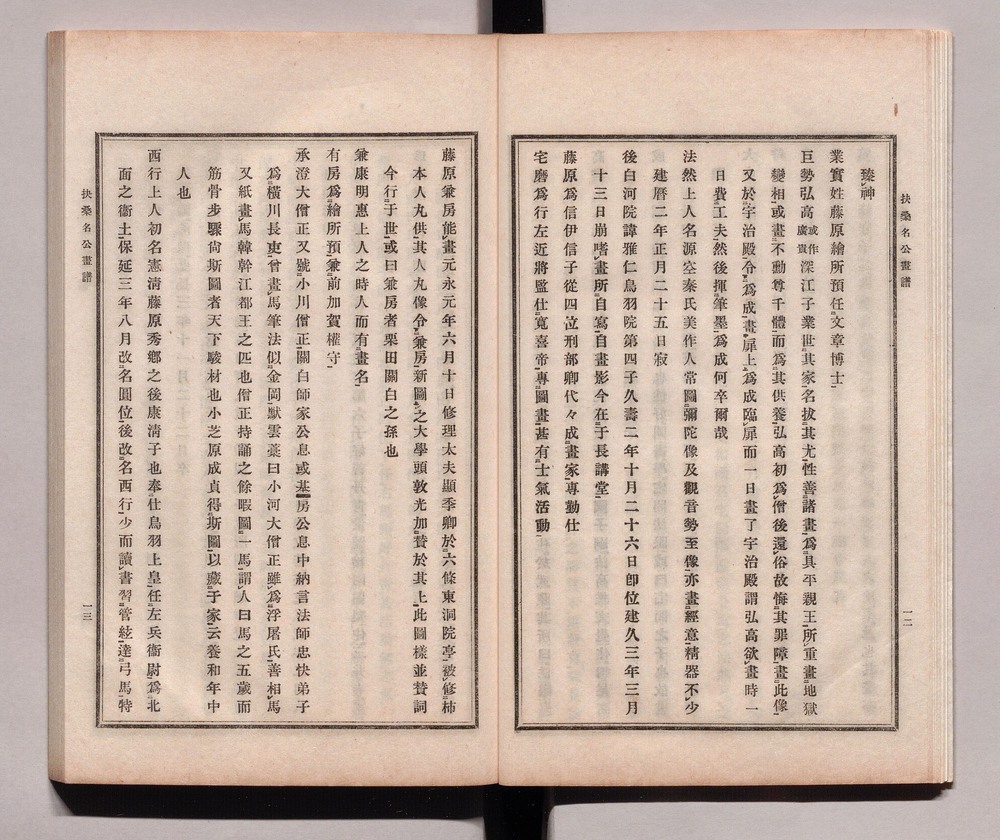 扶桑名公畫譜
一二
臻神
業實姓藤原繪所預任文章博士
巨勢弘高或作廣貴深江子業世其家名拔其尤性善諸畫爲具平親王所重畫地獄
變相或畫不動尊千體而爲其供養弘高初爲僧後還俗故悔其罪障畫此像
又於宇治殿令爲成畫扉上爲成臨扉而一日畫了宇治殿謂弘高欲畫時一
日費工夫然後揮筆墨爲成何卒爾哉
法然上人名源空秦氏美作人常圖彌陀像及觀音勢至像亦畫經意精器不少
建曆二年正月二十五日寂
後白河院諱雅仁鳥羽院第四子久壽二年十月二十六日卽位建久三年三月
十三日崩嗜畫所自寫自畫影今在于長講堂
藤原爲信伊信子從四位刑部卿代々成畫家專勤仕
宅磨爲行左近將監仕寬喜帝專圖畫甚有士氣活動
藤原兼房能畫元永元年六月十日修理太夫顯季卿於六條東洞院亭被修柿
本人丸供其人丸像令兼房新圖之大學頭敦光加贊於其上此圖樣並贊詞
今行于世或曰兼房者栗田關白之孫也
兼康明惠上人之時人而有畫名
有房爲繪所預兼前加賀權守
承澄大僧正又號小川僧正關白師家公息或基房公息中納言法師忠快弟子
爲橫川長吏曾畫馬筆法似金岡默雲藁曰小河大僧正雖爲浮屠氏善相馬
又紙畫馬韓幹江都王之匹也僧正持誦之餘暇圖一馬謂人曰馬之五歲而
筋骨步驟尙斯圖者天下駿材也小芝原成貞得斯圖以藏于家云養和年中
人也
西行上人初名憲淸藤原秀鄕之後康淸子也奉仕鳥羽上皇任左兵衞尉爲北
面之衞士保延三年八月改名圓位後改名西行少而讀書習管絃達弓馬特
扶桑名公畫譜
一三